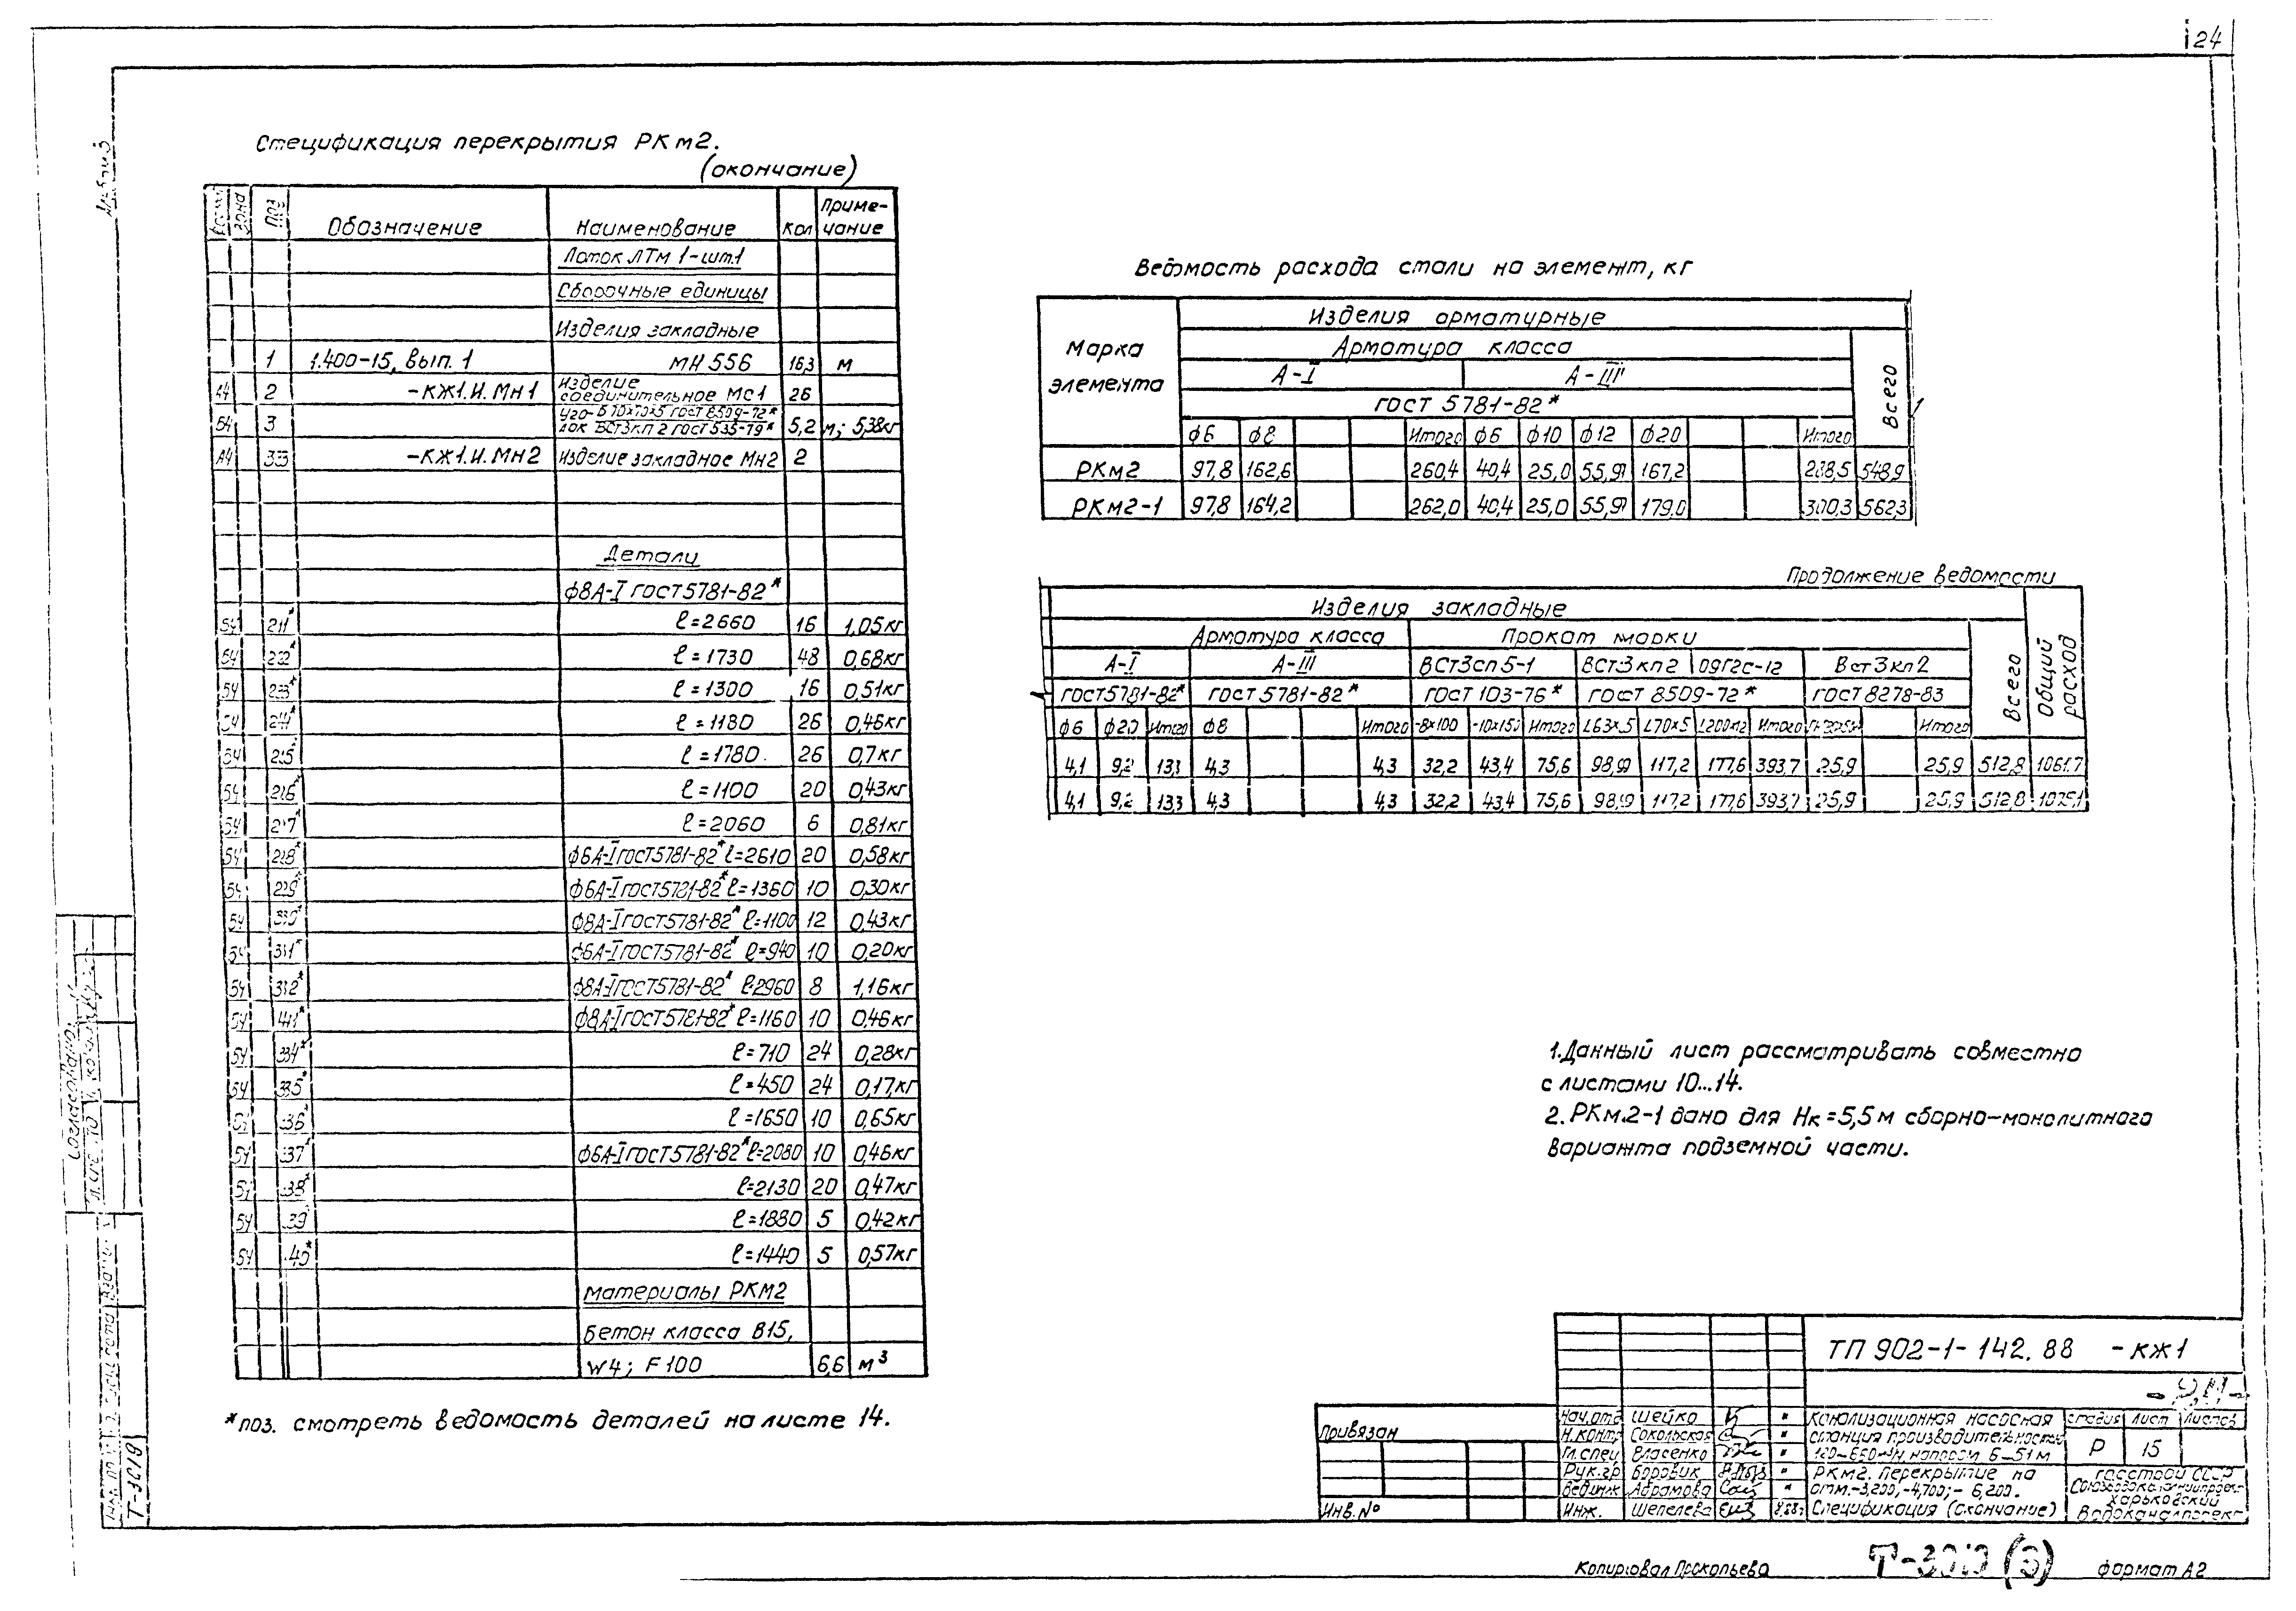 24
Спецификация перекрытия РКм2.
(окончание)
Зона Поз. Обозначение Наименование Кол Примечание
Лоток ЛТм 1-шт.1
Сборочные единицы
Изделия закладные
1 1.400-15, вып. 1 МН 556 16,3 м
А4 2 -КЖ1.И.Мн1 Изделие соединительное Мс1 26
Б4 3 Уголок Б 70х70х5 ГОСТ 8509-72* ВСт3кп2 ГОСТ 535-79* 5,2 м; 5,38кг
А4 33 -КЖ1.И.Мн2 Изделие закладное Мн2 2
Детали
ф8А-I ГОСТ5781-82*
Б4 ℓ=2660 16 1,05кг
Б4 ℓ=1730 48 0,68кг
Б4 ℓ=1300 16 0,51кг
Б4 ℓ=1180 26 0,46кг
Б4 ℓ=1780 26 0,7кг
Б4 ℓ=1100 20 0,43кг
Б4 ℓ=2060 6 0,81кг
Б4 ф6А-I ГОСТ5781-82* ℓ=2610 20 0,58кг
Б4 ф6А-I ГОСТ5781-82* ℓ=1360 10 0,30кг
Б4 ф8А-I ГОСТ5781-82* ℓ=1100 12 0,43кг
Б4 ф6А-I ГОСТ5781-82* ℓ=940 10 0,20кг
Б4 ф8А-I ГОСТ5781-82* ℓ=2960 8 1,16кг
Б4 ф8А-I ГОСТ5781-82* ℓ=1160 10 0,46кг
Б4 ℓ=710 24 0,28кг
Б4 ℓ=450 24 0,17кг
ℓ=1650 10 0,65кг
Б4 ф6А-I ГОСТ5781-82* ℓ=2080 10 0,46кг
Б4 ℓ=2130 20 0,47кг
Б4 ℓ=1880 5 0,42кг
Б4 40* ℓ=1440 5 0,57кг
Материалы РКМ2
Бетон класса В15,
W4; F100 6,6 м³
*поз. смотреть ведомость деталей на листе 14.
Ведомость расхода стали на элемент, кг
Марка элемента Изделия арматурные Всего
Арматура класса
А-I А-III
ГОСТ 5781-82*
ф6 ф8 Итого ф6 ф10 ф12 ф20 Итого
РКм2 97,8 162,6 260,4 40,4 25,0 55,9 167,2 288,5 548,9
РКм2-1 97,8 164,2 262,0 40,4 25,0 55,9 179,0 300,3 562,3
Продолжение ведомости
Изделия закладные Всего Общий расход
Арматура класса Прокат марки
А-I А-III ВСт3сп5-1 ВСт3кп2 09Г2С-12 Вст3кп2
ГОСТ5781-82* ГОСТ5781-82* ГОСТ 103-76* ГОСТ 8509-72* ГОСТ 8278-83
ф6 ф20 Итого ф8 Итого -8х100 -10х150 Итого L63х5 L70х5 L200х12 Итого Итого
4,1 9,2 13,3 4,3 4,3 32,2 43,4 75,6 98,9 117,2 177,6 393,7 25,9 25,9 512,8 1061,7
4,1 9,2 13,3 4,3 4,3 32,2 43,4 75,6 98,9 117,2 177,6 393,7 25,9 25,9 512,8 1075,1
1. Данный лист рассматривать совместно
с листами 10...14.
2. РКм.2-1 дано для Нк=5,5м сборно-монолитного
варианта подземной части.
ТП 902-1-142.88 -КЖ1
Привязан
Инв.№
Нач.отд Шейко
Н.контр Сокольская
Гл.спец Власенко
Рук.гр Боровик
Вед.инж Абрамова
Инж. Шепелева
Канализационная насосная
станция производительностью
напором 6-51м
РКм2. Перекрытие на
отм.-3,200;-4,700;-6,200.
Спецификация (окончание)
Стадия Лист Листов
Р 15
Госстрой СССР
Союзводоканалниипроект
Харьковский
Водоканалпроект
Согласовано:
Копировал Прокопьева
формат А2